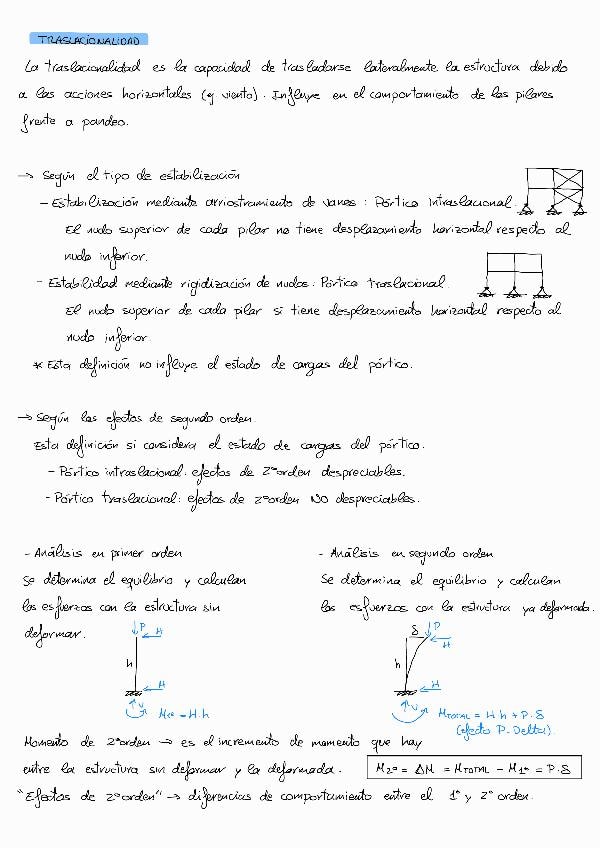 TRASLACIONALIDAD
La traslacionalidad es la capacidad de trasladarse lateralmente la estructura debido
a las acciones horizontales (ej viento). Influye en el comportamiento de los pilares
frente a pandeo.
→ Según el tipo de estabilización
- Estabilización mediante arriostramiento de vanos : Pórtico Intraslacional.
El nudo superior de cada pilar no tiene desplazamiento horizontal respecto al
nudo inferior.
- Estabilidad mediante rigidización de nudos: Pórtico traslacional.
El nudo superior de cada pilar si tiene desplazamiento horizontal respecto al
nudo inferior.
* Esta definición no influye el estado de cargas del pórtico.
→ Según los efectos de segundo orden.
Esta definición si considera el estado de cargas del pórtico.
- Pórtico intraslacional: efectos de 2º orden despreciables.
- Pórtico traslacional: efectos de 2º orden NO despreciables.
- Análisis en primer orden
Se determina el equilibrio y calculan
los esfuerzos con la estructura sin
deformar.
P
H
h
H
V
M1º = H·h
- Análisis en segundo orden
Se determina el equilibrio y calculan
los esfuerzos con la estructura ya deformada.
δ
P
H
h
H
V
MTOTAL = H h + P·δ
(efecto P-Delta)
Momento de 2º orden → es el incremento de momento que hay
entre la estructura sin deformar y la deformada.
M2º = ΔM = MTOTAL - M1º = P·δ
"Efectos de 2º orden" → diferencias de comportamiento entre el 1º y 2º orden.